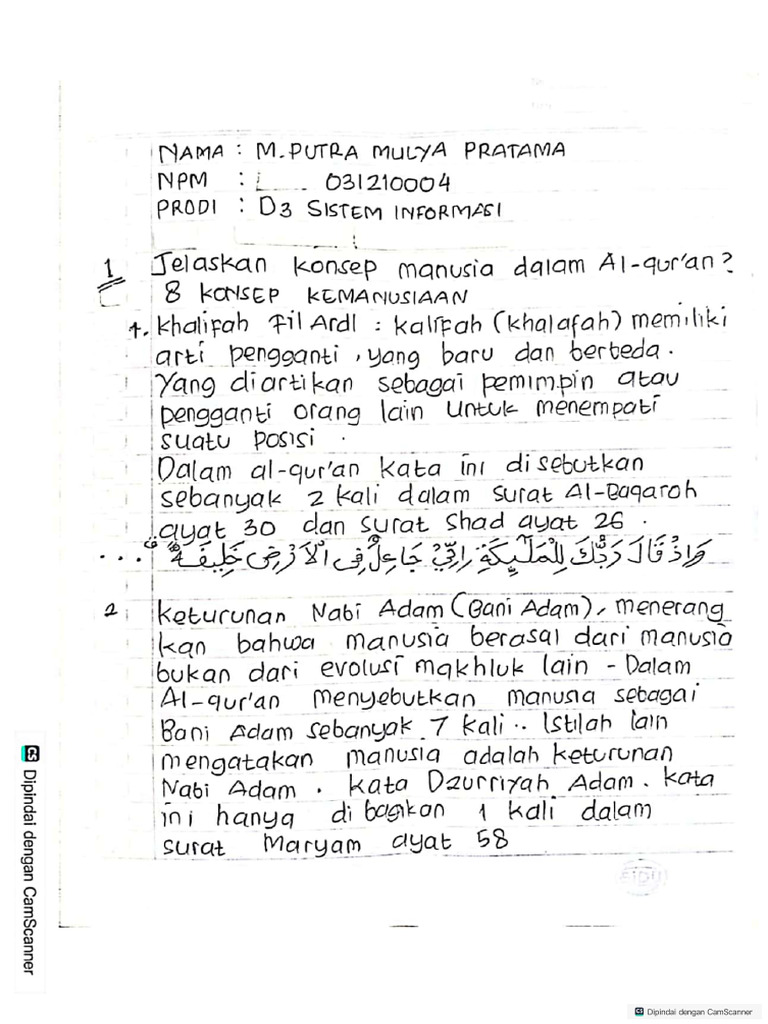 NAMA : M. PUTRA MULYA PRATAMA
NPM : 031210004
PRODI : D3 SISTEM INFORMASI
1 Jelaskan konsep manusia dalam Al-qur'an?
8 KONSEP KEMANUSIAAN
1. Khalifah Fil Ardl : kalifah (khalafah) memiliki
arti pengganti, yang baru dan berbeda.
Yang diartikan sebagai pemimpin atau
pengganti orang lain untuk menempati
suatu posisi.
Dalam al-qur'an kata ini disebutkan
sebanyak 2 kali dalam surat Al-Baqaroh
ayat 30 dan surat shad ayat 26.
وَاِذْ قَالَ رَبُّكَ لِلْمَلٰۤىِٕكَةِ اِنِّيْ جَاعِلٌ فِى الْاَرْضِ خَلِيْفَةً ۗ ...
2 keturunan Nabi Adam (Bani Adam), menerang
kan bahwa manusia berasal dari manusia
bukan dari evolusi makhluk lain - Dalam
Al-qur'an menyebutkan manusia sebagai
Bani Adam sebanyak 7 kali.. Istilah lain
mengatakan manusia adalah keturunan
Nabi Adam. kata Dzurriyah Adam. kata
ini hanya dibagikan 1 kali dalam
surat Maryam ayat 58
Dipindai dengan CamScanner
Dipindai dengan CamScanner